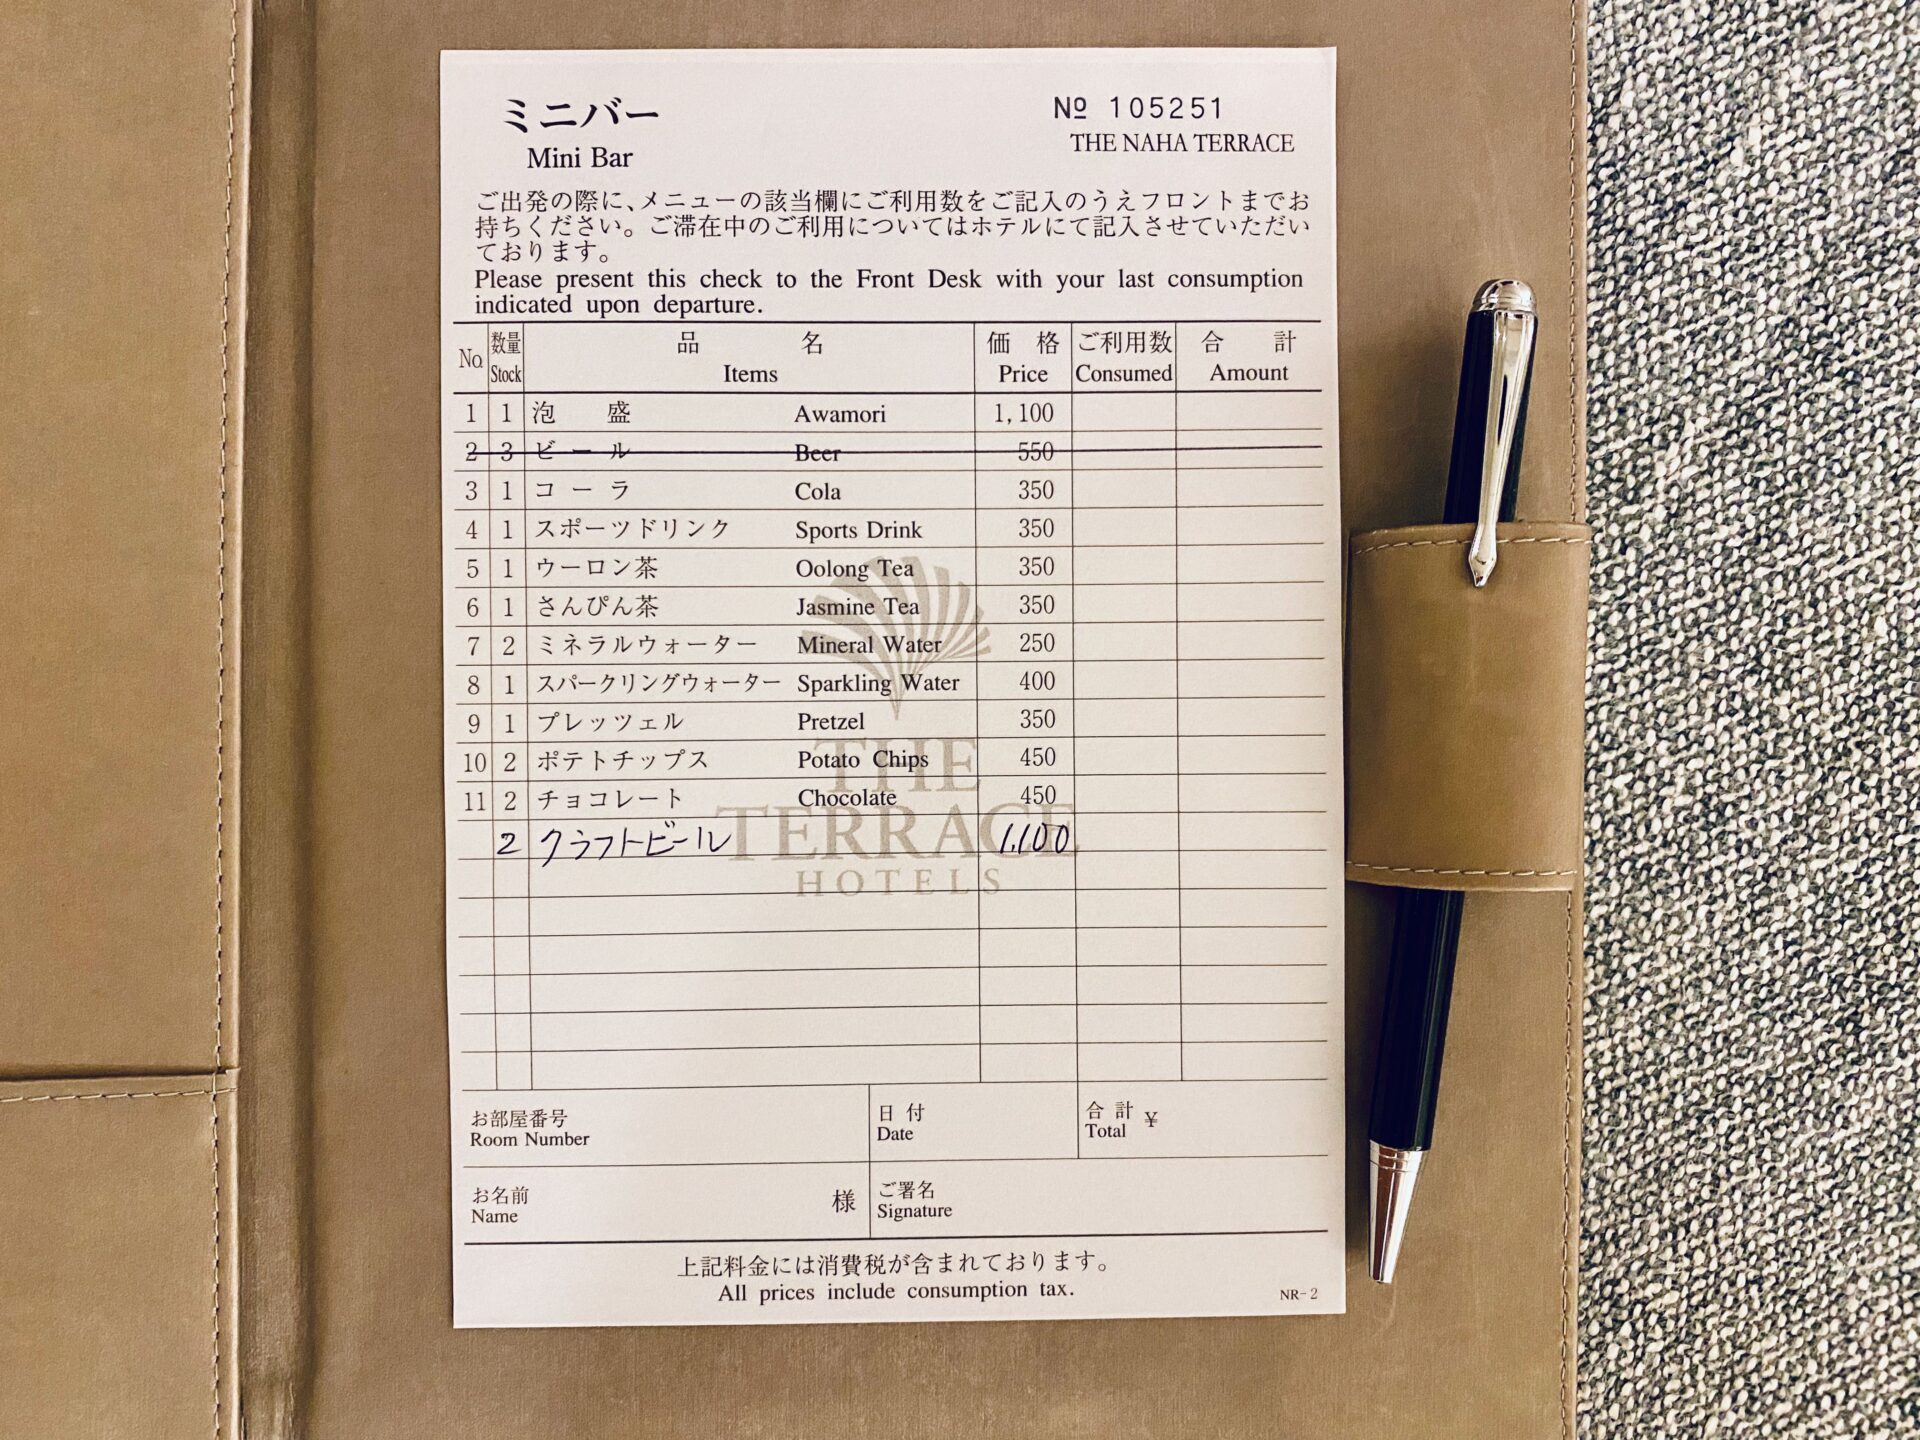 ミニバー
Mini Bar
№ 105251
THE NAHA TERRACE
ご出発の際に、メニューの該当欄にご利用数をご記入のうえフロントまでお
持ちください。ご滞在中のご利用についてはホテルにて記入させていただい
ております。
Please present this check to the Front Desk with your last consumption
indicated upon departure.
No. 数量 Stock 品名 Items 価格 Price ご利用数 Consumed 合計 Amount
1 1 泡盛 Awamori 1,100
2 3 ビール Beer 550
3 1 コーラ Cola 350
4 1 スポーツドリンク Sports Drink 350
5 1 ウーロン茶 Oolong Tea 350
6 1 さんぴん茶 Jasmine Tea 350
7 2 ミネラルウォーター Mineral Water 250
8 1 スパークリングウォーター Sparkling Water 400
9 1 プレッツェル Pretzel 350
10 2 ポテトチップス Potato Chips 450
11 2 チョコレート Chocolate 450
2 クラフトビール 1,100
THE
TERRACE
HOTELS
お部屋番号
Room Number
日付
Date
合計 ¥
Total
お名前 様
Name
ご署名
Signature
上記料金には消費税が含まれております。
All prices include consumption tax.
NR-2